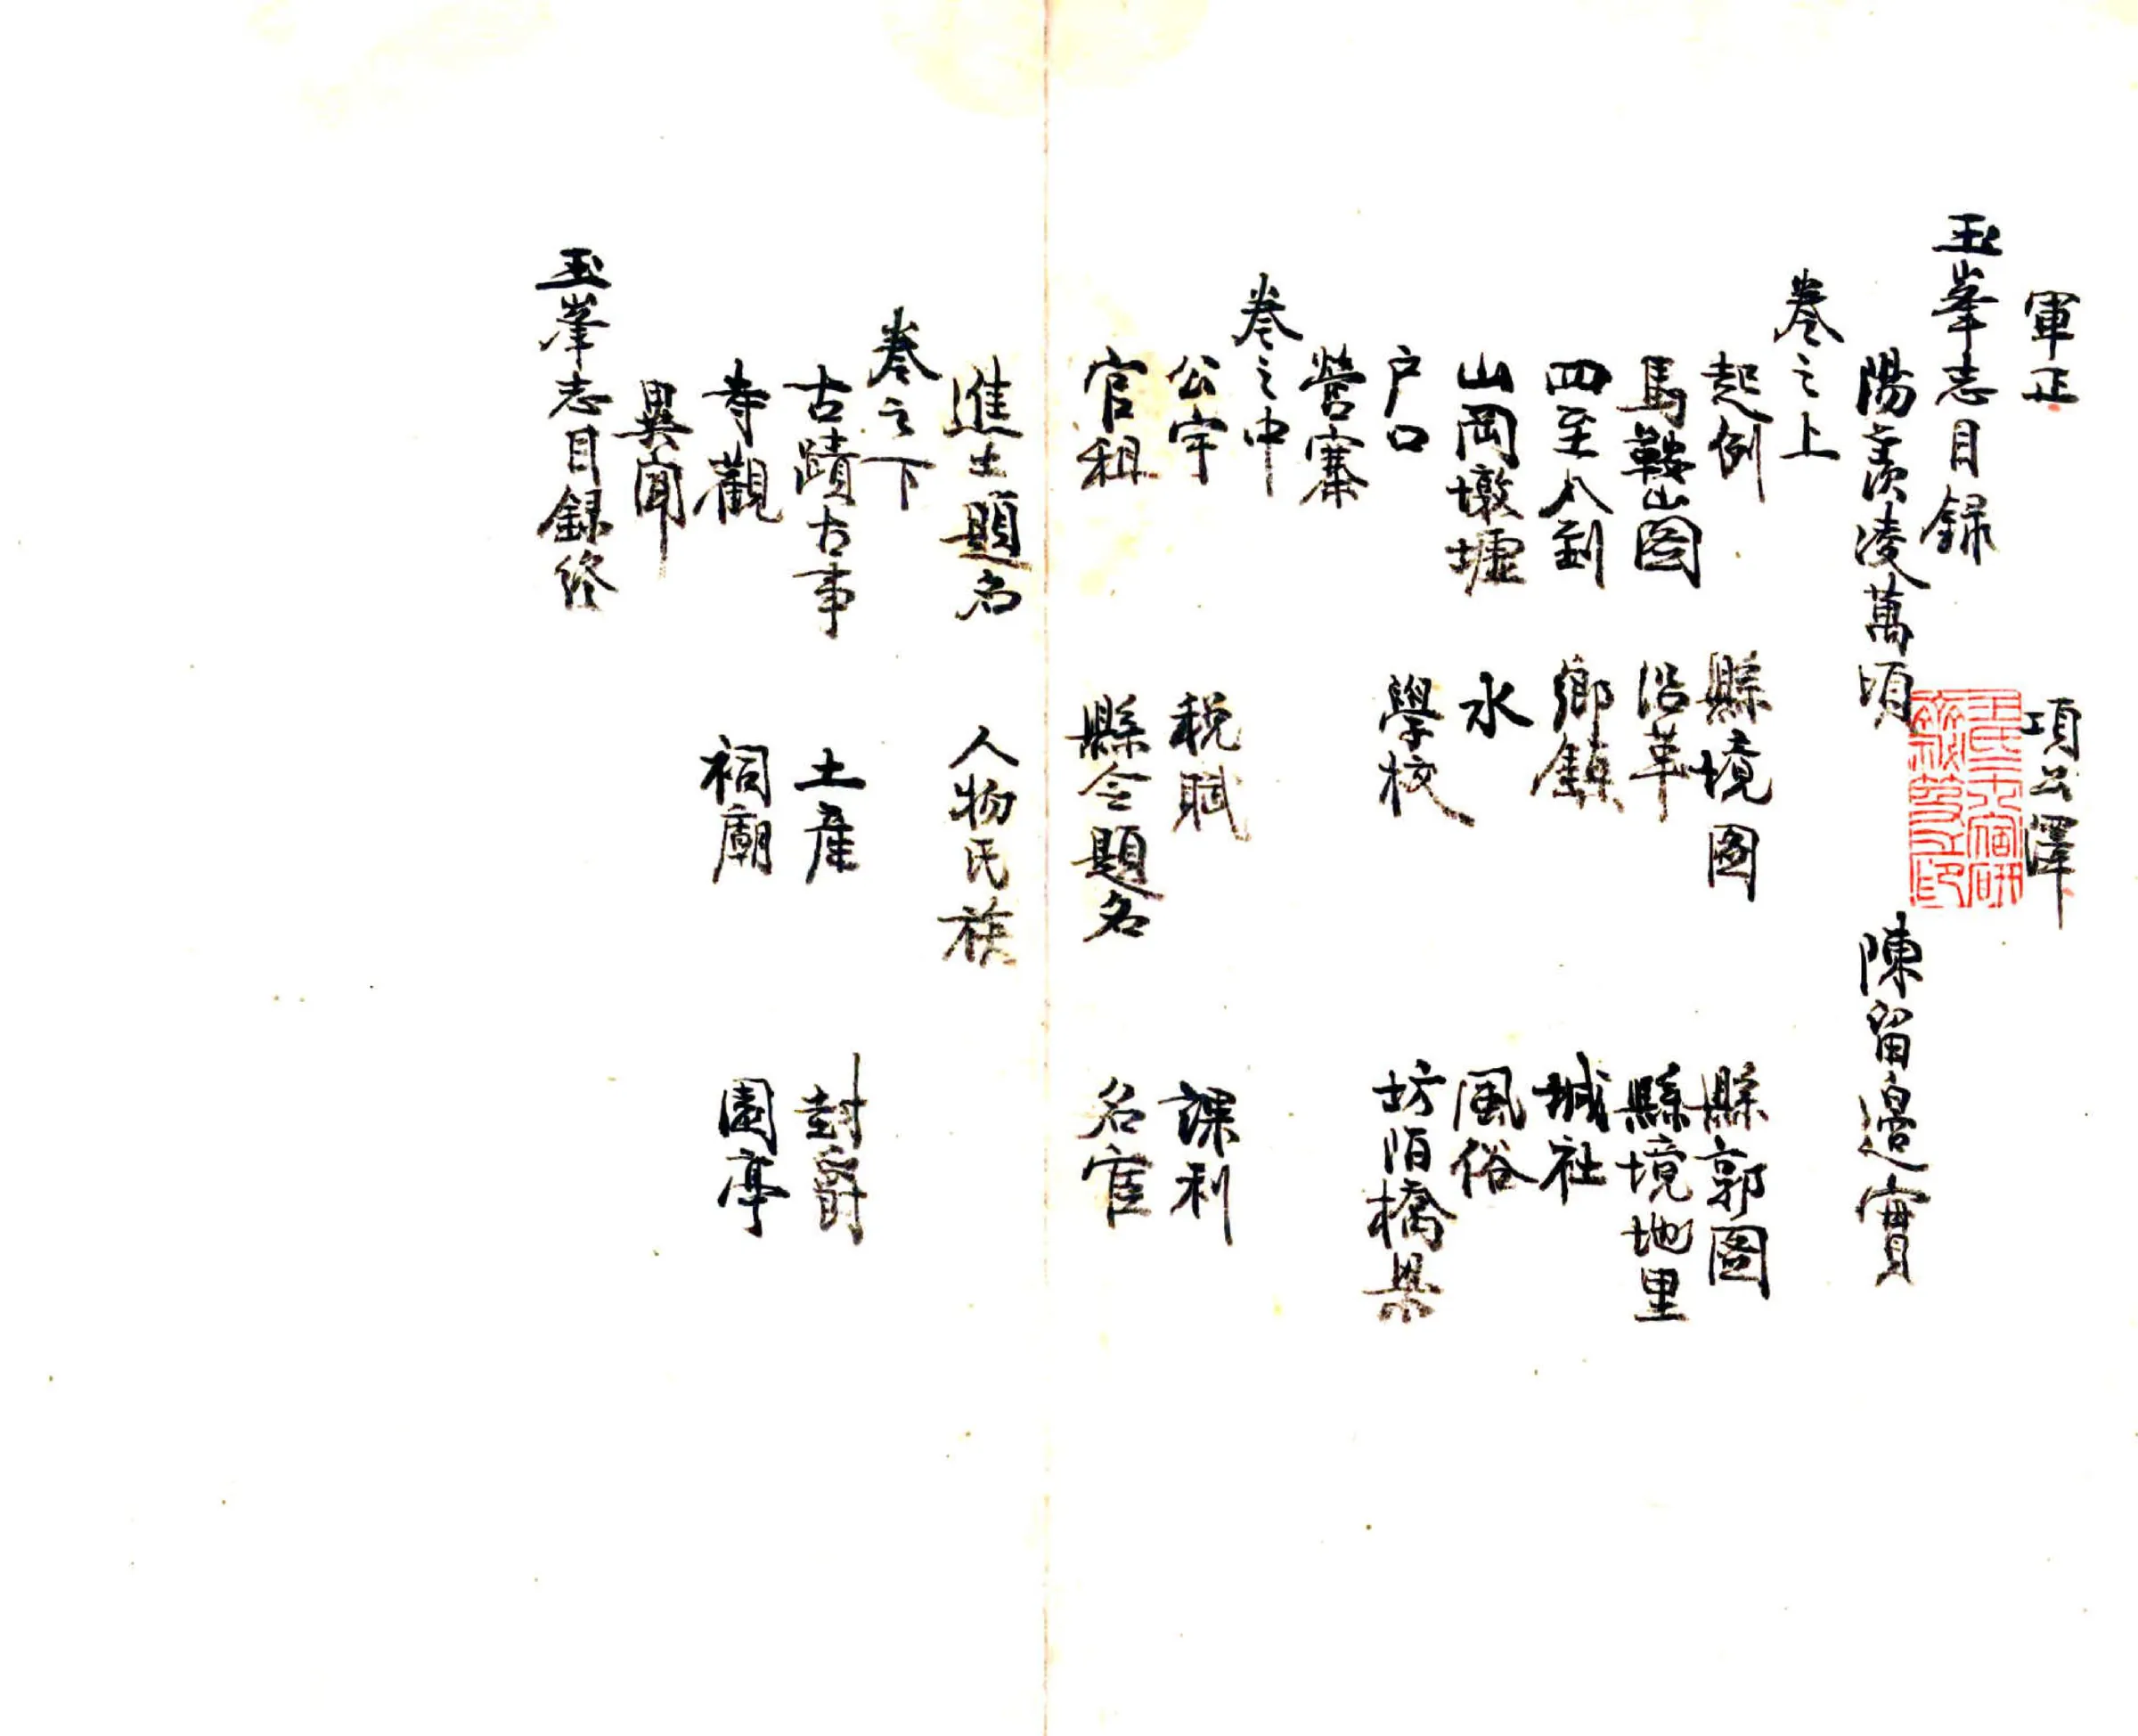 軍正　項公澤
玉峯志目録
陽羨凌萬頃　陳留邉實
卷之上
起例　縣境圖　縣郭圖
馬鞍山圖　沿革　縣境地里
四至八到　鄉鎮　城社
山岡墩墟　水　風俗
户口　學校　坊陌橋梁
營寨
卷之中
公宇　税賦　課利
官租　縣令題名　名宦
進士題名　人物氏族
卷之下
古蹟古事　土產　封爵
寺觀　祠廟　園亭
異聞
玉峯志目録終